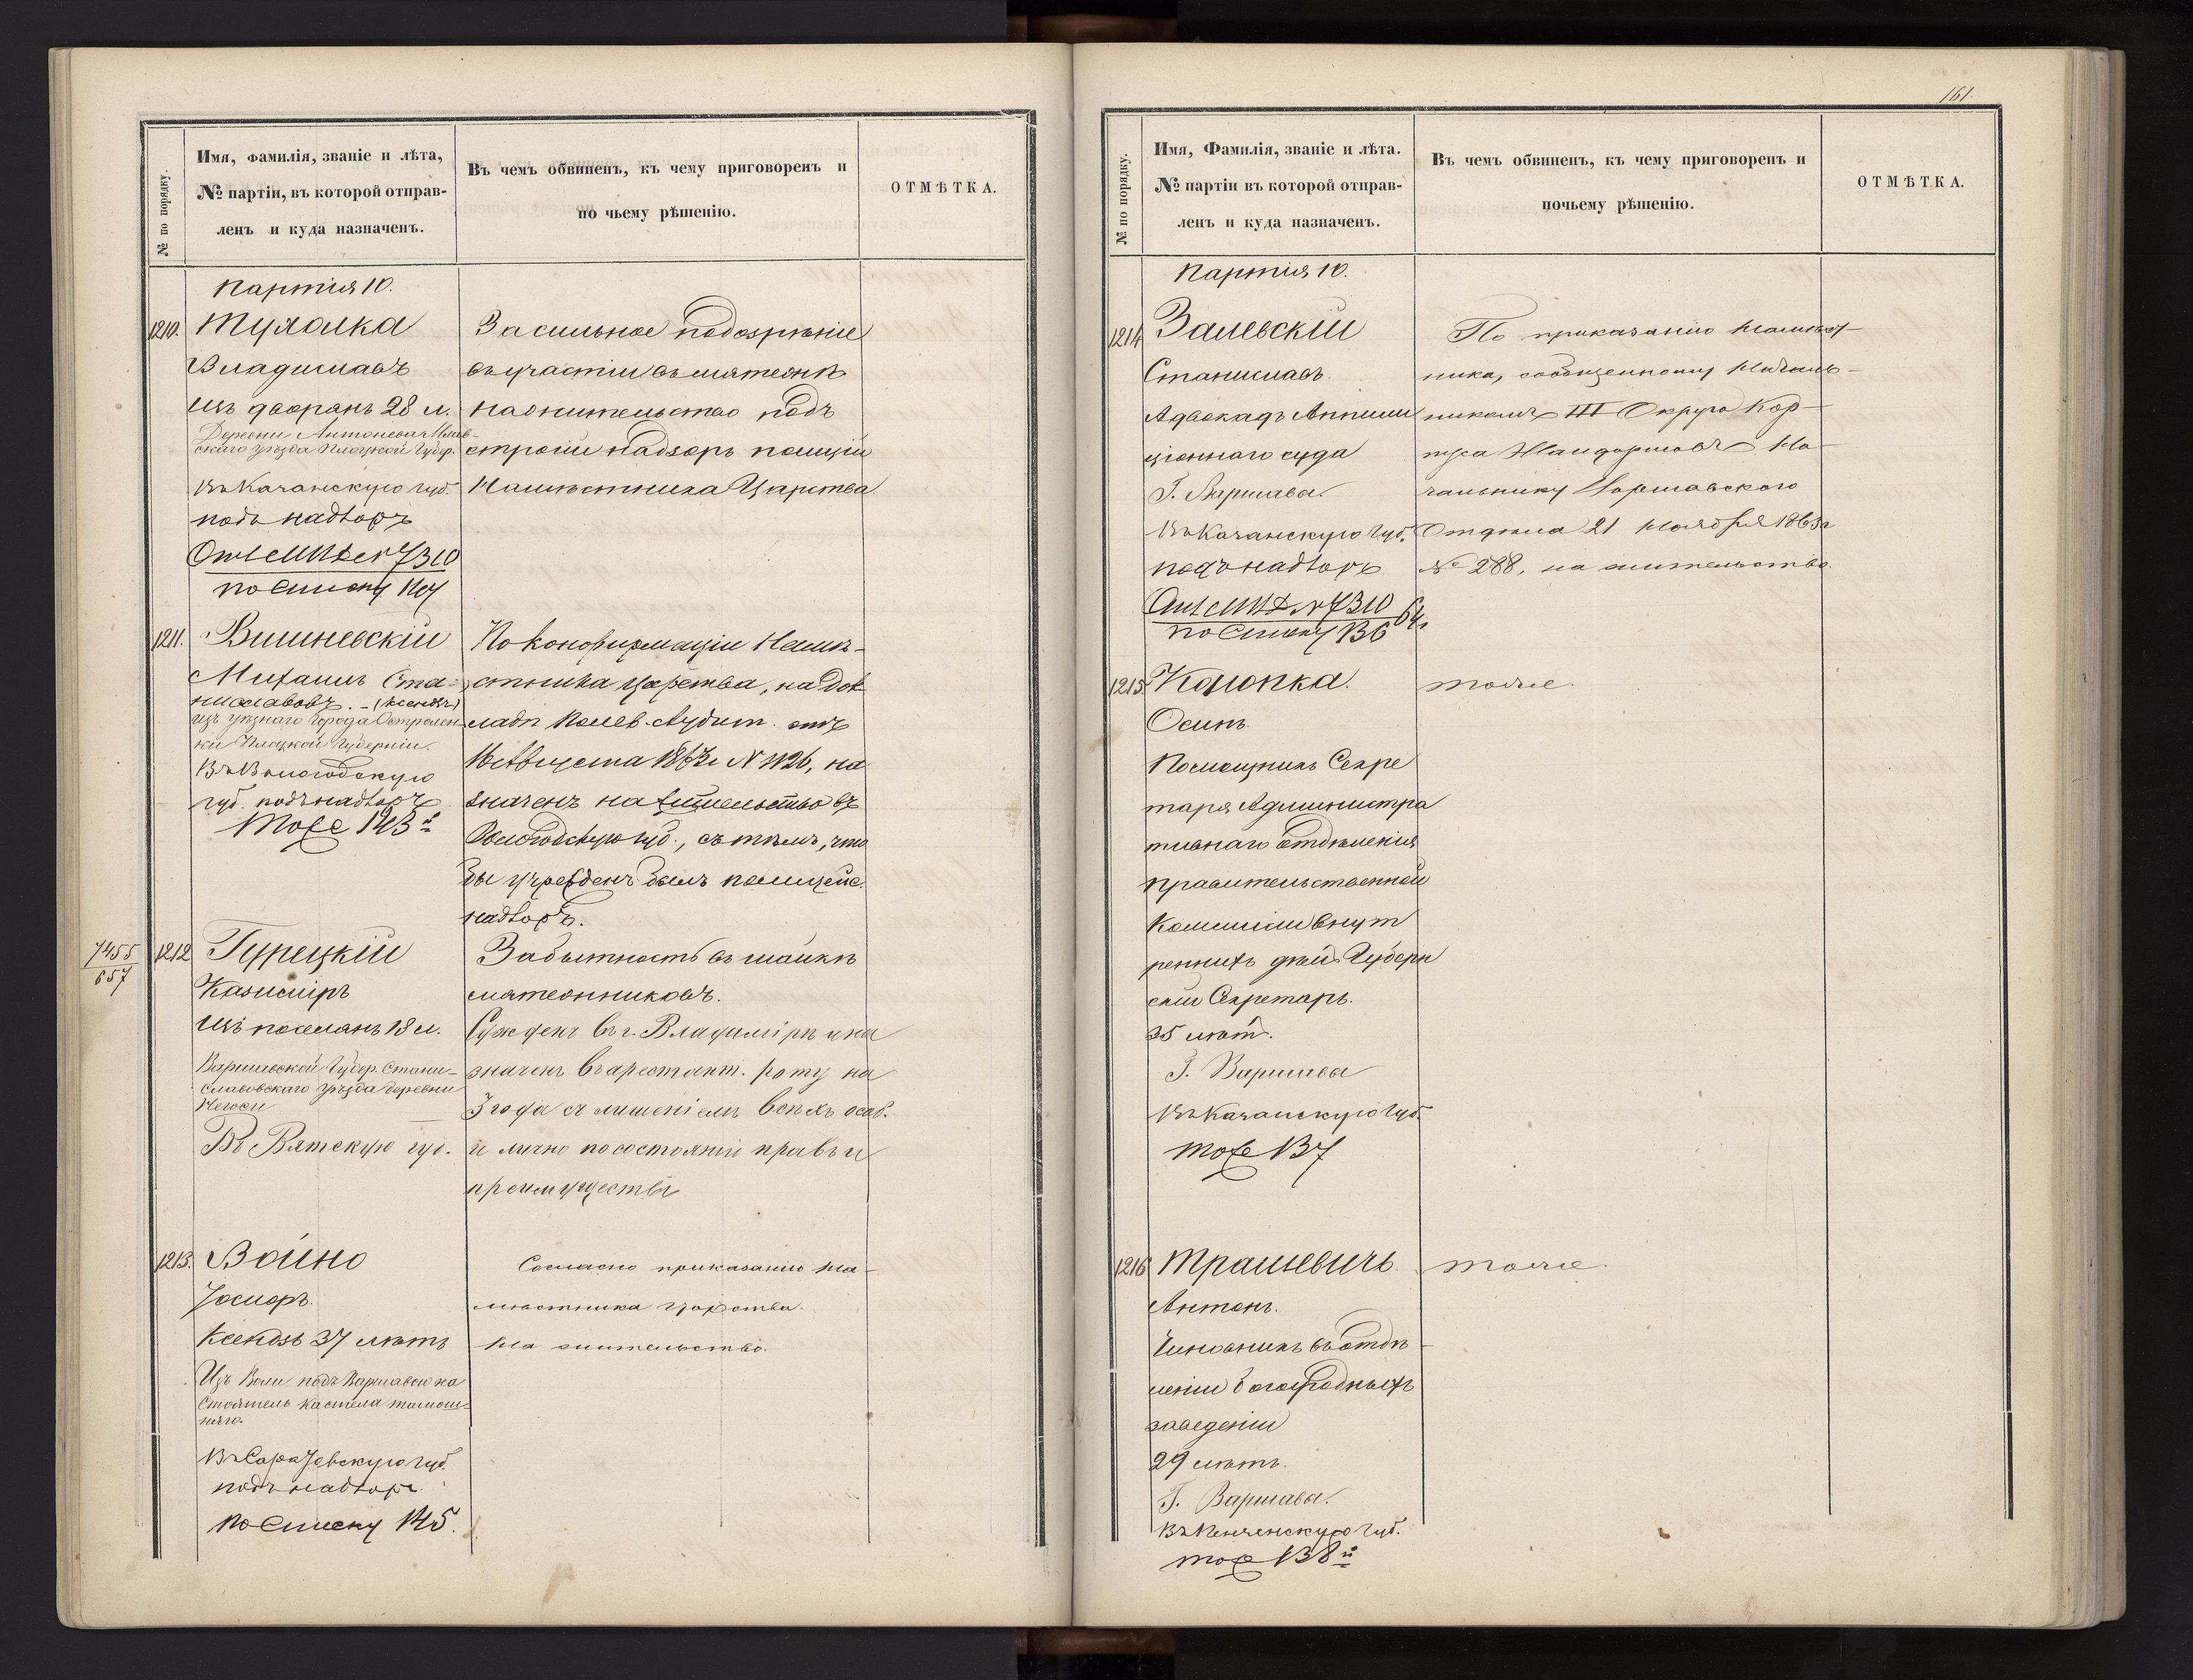 № по порядку.
Имя, фамилія, званіе и лѣта,
№ партіи, въ которой отправ-
ленъ и куда назначенъ.
Въ чемъ обвиненъ, къ чему приговоренъ и
по чьему рѣшенію.
ОТМѢТКА.
Партія 10.
1210.
Владиславъ
Изъ дворянъ 28 л.
Деревни
скаго уѣзда Плоцкой Губер.
Въ Казанскую губ.
подъ надзоръ
№ 7310
по списку
За сильное подозрѣніе
въ участіи въ мятежѣ
на жительство подъ
строгій надзоръ полиціи
Намѣстника Царства
1211.
Вишневскій
Михаилъ Ста-
ниславовъ. - (ксендзъ)
изъ уѣзнаго города Остролен-
ки Плоцкой Губерніи.
Въ Вологодскую
губ. подъ надзоръ
Тоже 143й
По конфирмаціи Намѣ-
стника царства, на док
ладѣ Полев. Аудит. отъ
Августа 1863г № 1126, на
значенъ на жительство въ
Вологодскую губ., съ тѣмъ, что
бы учрежденъ былъ полицейс.
надзоръ.
7455
657
1212
Гурецкій
Казимiръ
Изъ поселянъ 18 л.
Варшавской Губер. Стани-
славовскаго уѣзда деревни
Въ Вятскую губ.
За бытность въ шайкѣ
мятежниковъ.
Сужденъ въ г. Владимірѣ и на
значенъ въ арестант. роту на
3 года съ лишеніемъ всѣхъ особ.
и лично по состоянію правъ и
преимуществъ
1213.
Войно
Іосифъ.
Ксендзъ 37 лѣтъ
Изъ Воли подъ Варшавою на
стоятель костела тамош-
няго.
Въ Саратовскую губ
подъ надзоръ.
По списку 145.
Согласно приказанію На-
мѣстника царства.
На жительство.
161.
№ по порядку.
Имя, Фамилія, званіе и лѣта.
№ партіи въ которой отправ-
ленъ и куда назначенъ.
Въ чемъ обвиненъ, къ чему приговоренъ и
почьему рѣшенію.
ОТМѢТКА.
Партія 10.
1214
Залевскій
Станиславъ
Адвокадъ Аппелля
ціоннаго суда
Г. Варшава.
Въ Казанскую губ.
подъ надзоръ
№ 7310
по списку 136
По приказанію Намѣст-
ника, сообщенному Началь-
никомъ III Округа Кор-
пуса Жандармовъ На-
чальнику Варшавскаго
Отдѣла 21 Ноября 1863г
№ 288, на жительство.
1215.
Колопка.
Осипъ
Помощникъ Секре
таря Администра
тивнаго отдѣленія
правительственной
Комиссіи внут
реннихъ дѣлъ Губерн
скій Секретарь.
35 лѣтъ.
Г. Варшава
Въ Казанскую губ.
тоже 137
тоже.
1216
Трашевичъ.
Антонъ.
Чиновникъ въ отдѣ-
леніи богоугодныхъ
заведеніи
29 лѣтъ.
Г. Варшава.
Въ Пензенскую губ.
тоже 138й
тоже.